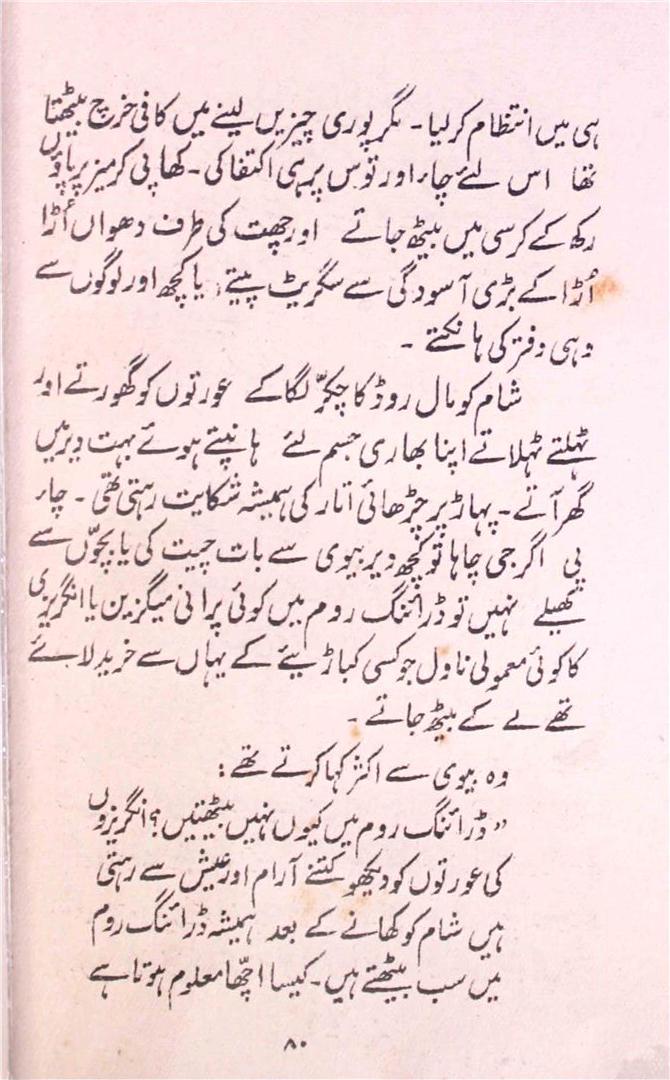 ہی میں انتظام کر لیا۔ مگر پوری چیزیں لینے میں کافی خرچ بیٹھتا
تھا اس لئے چاء اور توس پر ہی اکتفا کی۔ کھا پی کر میز پر پاؤں
رکھ کے کرسی میں بیٹھ جاتے اور چھت کی طرف دھواں اُڑا
اُڑا کے بڑی آسودگی سے سگریٹ پیتے، یا کچھ اور لوگوں سے
وہی دفتر کی ہانکتے ۔
شام کو مال روڈ کا چکّر لگا کے عورتوں کو گھورتے اور
ٹہلتے ٹہلاتے اپنا بھاری جسم لئے ہانپتے ہوئے بہت دیر میں
گھر آتے۔ پہاڑ پر چڑھائی اتار کی ہمیشہ شکایت رہتی تھی ۔ چاء
پی اگر جی چاہا تو کچھ دیر بیوی سے بات چیت کی یا بچّوں سے
کھیلے نہیں تو ڈرائنگ روم میں کوئی پرانی میگزین یا انگریزی
کا کوئی معمولی ناول جو کسی کباڑیئے کے یہاں سے خرید لائے
تھے لے کے بیٹھ جاتے ۔
وہ بیوی سے اکثر کہا کرتے تھے :
”ڈرائنگ روم میں کیوں نہیں بیٹھتیں؟ انگریزوں
کی عورتوں کو دیکھو کتنے آرام اور عیش سے رہتی
ہیں شام کو کھانے کے بعد ہمیشہ ڈرائنگ روم
میں سب بیٹھتے ہیں۔ کیسا اچھّا معلوم ہوتا ہے
۸۰